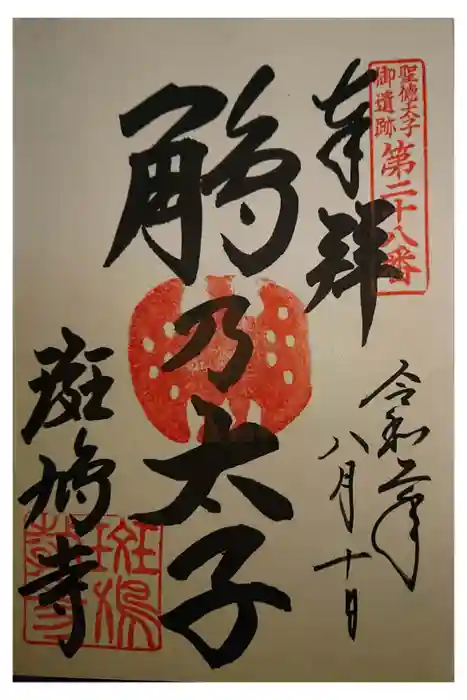 聖徳太子
御遺跡
第二十八番
奉拝
令和二年
八月十日
鵤乃太子
斑鳩寺